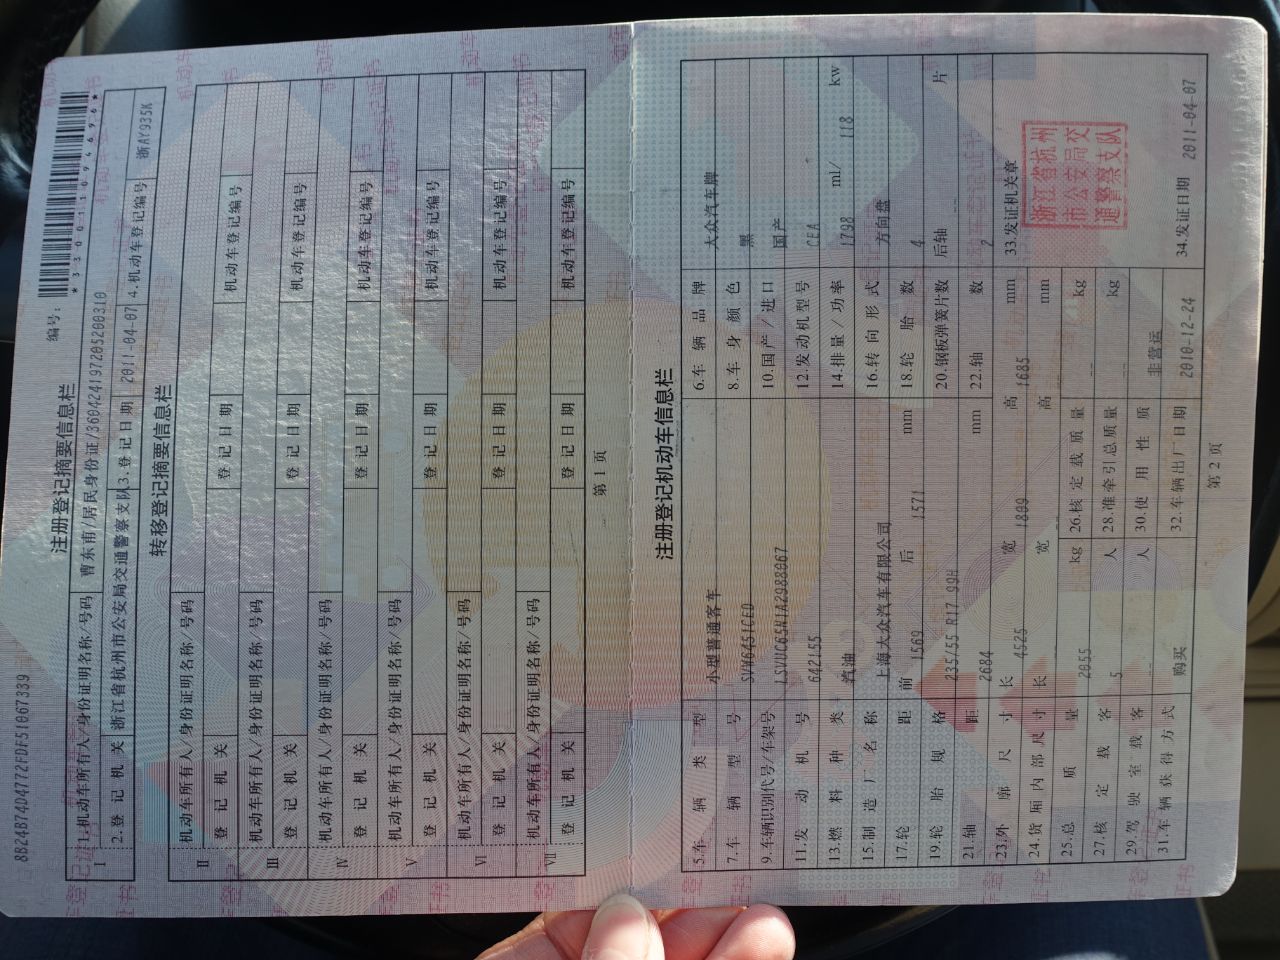 8B24B74D4772FDF51067339
编号:
*330011094696*
注册登记摘要信息栏
Ⅰ 1.机动车所有人/身份证明名称/号码 曹东甫/居民身份证/360424197205200310
2.登记机关 浙江省杭州市公安局交通警察支队 3.登记日期 2011-04-07 4.机动车登记编号 浙AY935K
转移登记摘要信息栏
Ⅱ 机动车所有人/身份证明名称/号码
登记机关 登记日期 机动车登记编号
Ⅲ 机动车所有人/身份证明名称/号码
登记机关 登记日期 机动车登记编号
Ⅳ 机动车所有人/身份证明名称/号码
登记机关 登记日期 机动车登记编号
Ⅴ 机动车所有人/身份证明名称/号码
登记机关 登记日期 机动车登记编号
Ⅵ 机动车所有人/身份证明名称/号码
登记机关 登记日期 机动车登记编号
Ⅶ 机动车所有人/身份证明名称/号码
登记机关 登记日期 机动车登记编号
第1页
注册登记机动车信息栏
5.车辆类型 小型普通客车 6.车辆品牌 大众汽车牌
7.车辆型号 SVW6451CED 8.车身颜色 黑
9.车辆识别代号/车架号 LSVUC65N1A2988067 10.国产/进口 国产
11.发动机号 642155 12.发动机型号 CEA
13.燃料种类 汽油 14.排量/功率 1798 ml/ 118 kw
15.制造厂名称 上海大众汽车有限公司 16.转向形式 方向盘
17.轮距 前 1569 后 1571 mm 18.轮胎数 4
19.轮胎规格 235/55 R17 99H 20.钢板弹簧片数 后轴 -- 片
21.轴距 2684 mm 22.轴数 2
23.外廓尺寸 长 4525 宽 1809 高 1685 mm 33.发证机关章
24.货厢内部尺寸 长 -- 宽 -- 高 -- mm
浙江省杭州
市公安局交
通警察支队
25.总质量 2055 kg 26.核定载质量 -- kg
27.核定载客 5 人 28.准牵引总质量 -- kg
29.驾驶室载客 -- 人 30.使用性质 非营运
31.车辆获得方式 购买 32.车辆出厂日期 2010-12-24 34.发证日期 2011-04-07
第2页